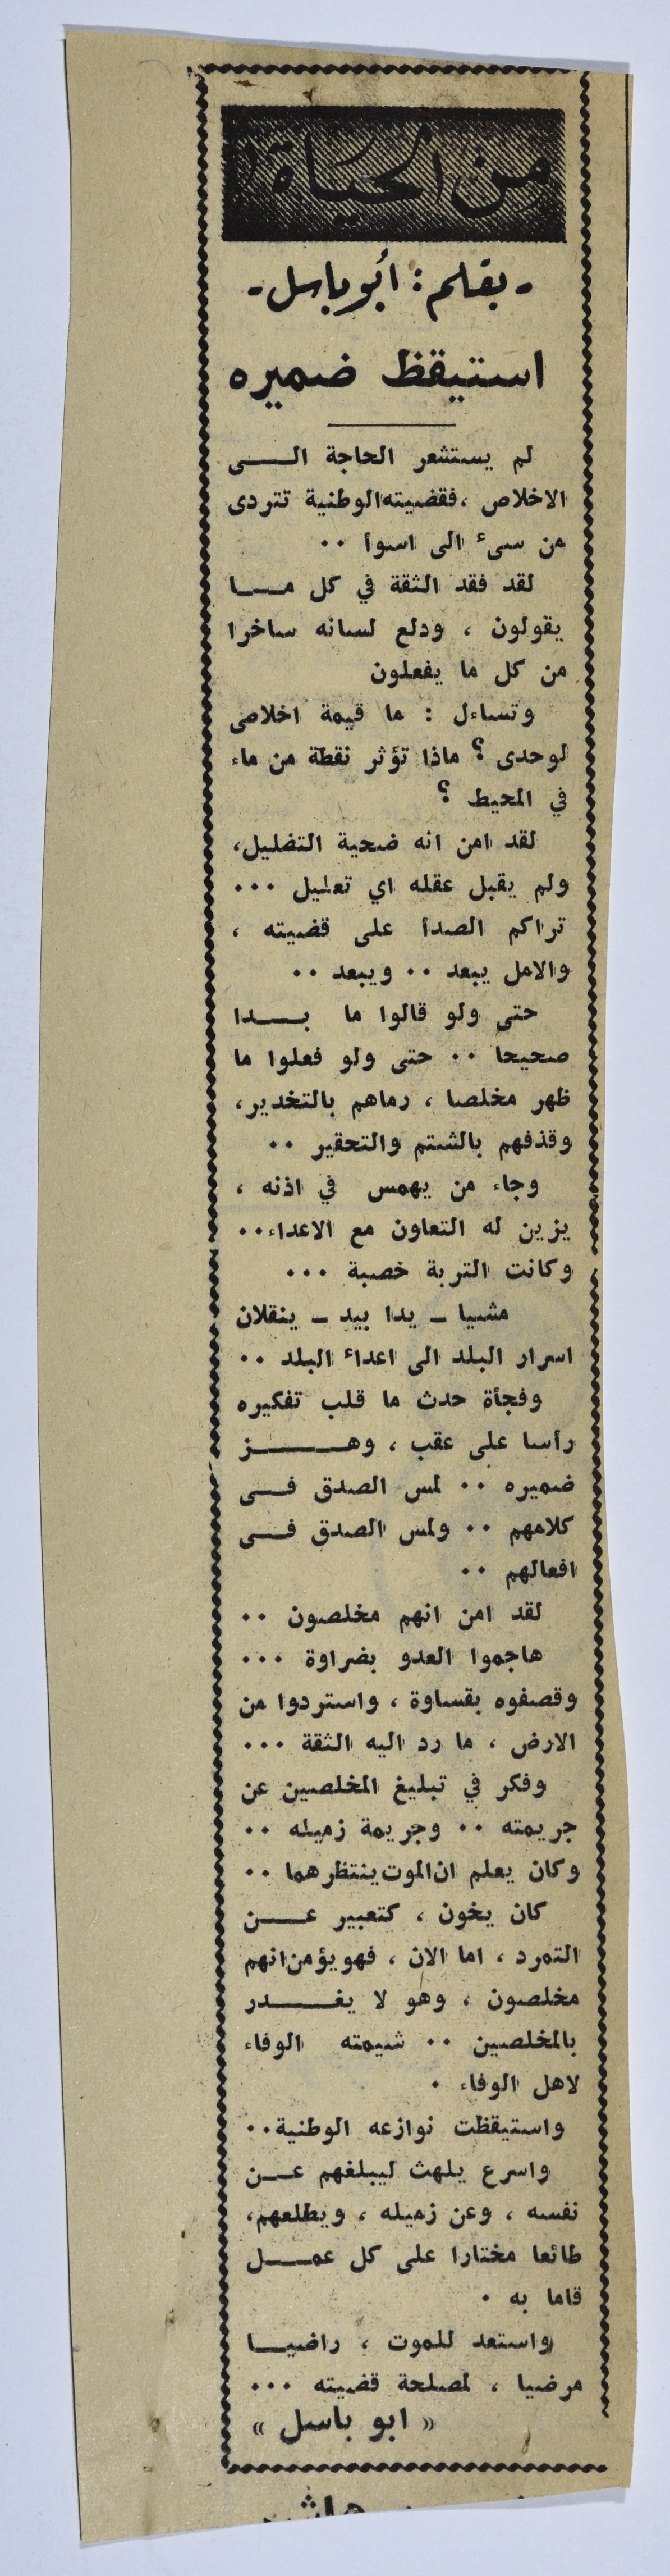 من الحياة
- بقلم : أبو باسل -
استيقظ ضميره
لم يستشعر الحاجة الـــى
الاخلاص ،فقضيته الوطنية تتردى
من سىء الى اسوأ ..
لقد فقد الثقة في كل مـــا
يقولون ، ودلع لسانه ساخرا
من كل ما يفعلون
وتساءل : ما قيمة اخلاصى
لوحدى ؟ ماذا تؤثر نقطة من ماء
في المحيط ؟
لقد امن انه ضحية التضليل،
ولم يقبل عقله اي تعليل ...
تراكم الصدأ على قضيته ،
والامل يبعد .. ويبعد ..
حتى ولو قالوا ما بـــدا
صحيحا .. حتى ولو فعلوا ما
ظهر مخلصا ، رماهم بالتخدير،
وقذفهم بالشتم والتحقير ..
وجاء من يهمس في اذنه ،
يزين له التعاون مع الاعداء..
وكانت التربة خصبة ...
مشيا ــ يدا بيد ــ ينقلان
اسرار البلد الى اعداء البلد ..
وفجأة حدث ما قلب تفكيره
رأسا على عقب ، وهـــز
ضميره .. لمس الصدق فـــى
كلامهم .. ولمس الصدق فـــى
افعالهم ..
لقد امن انهم مخلصون ..
هاجموا العدو بضراوة ...
وقصفوه بقساوة ، واستردوا من
الارض ، ما رد اليه الثقة ...
وفكر في تبليغ المخلصين عن
جريمته .. وجريمة زميله ..
وكان يعلم ان الموت ينتظرهما ..
كان يخون ، كتعبير عـــن
التمرد ، اما الان ، فهو يؤمن انهم
مخلصون ، وهو لا يغـــدر
بالمخلصين .. شيمته الوفاء
لاهل الوفاء .
واستيقظت نوازعه الوطنية..
واسرع يلهث ليبلغهم عـــن
نفسه ، وعن زميله ، ويطلعهم،
طائعا مختارا على كل عمـــل
قاما به .
واستعد للموت ، راضيـــا
مرضيا ، لمصلحة قضيته ...
« ابو باسل »